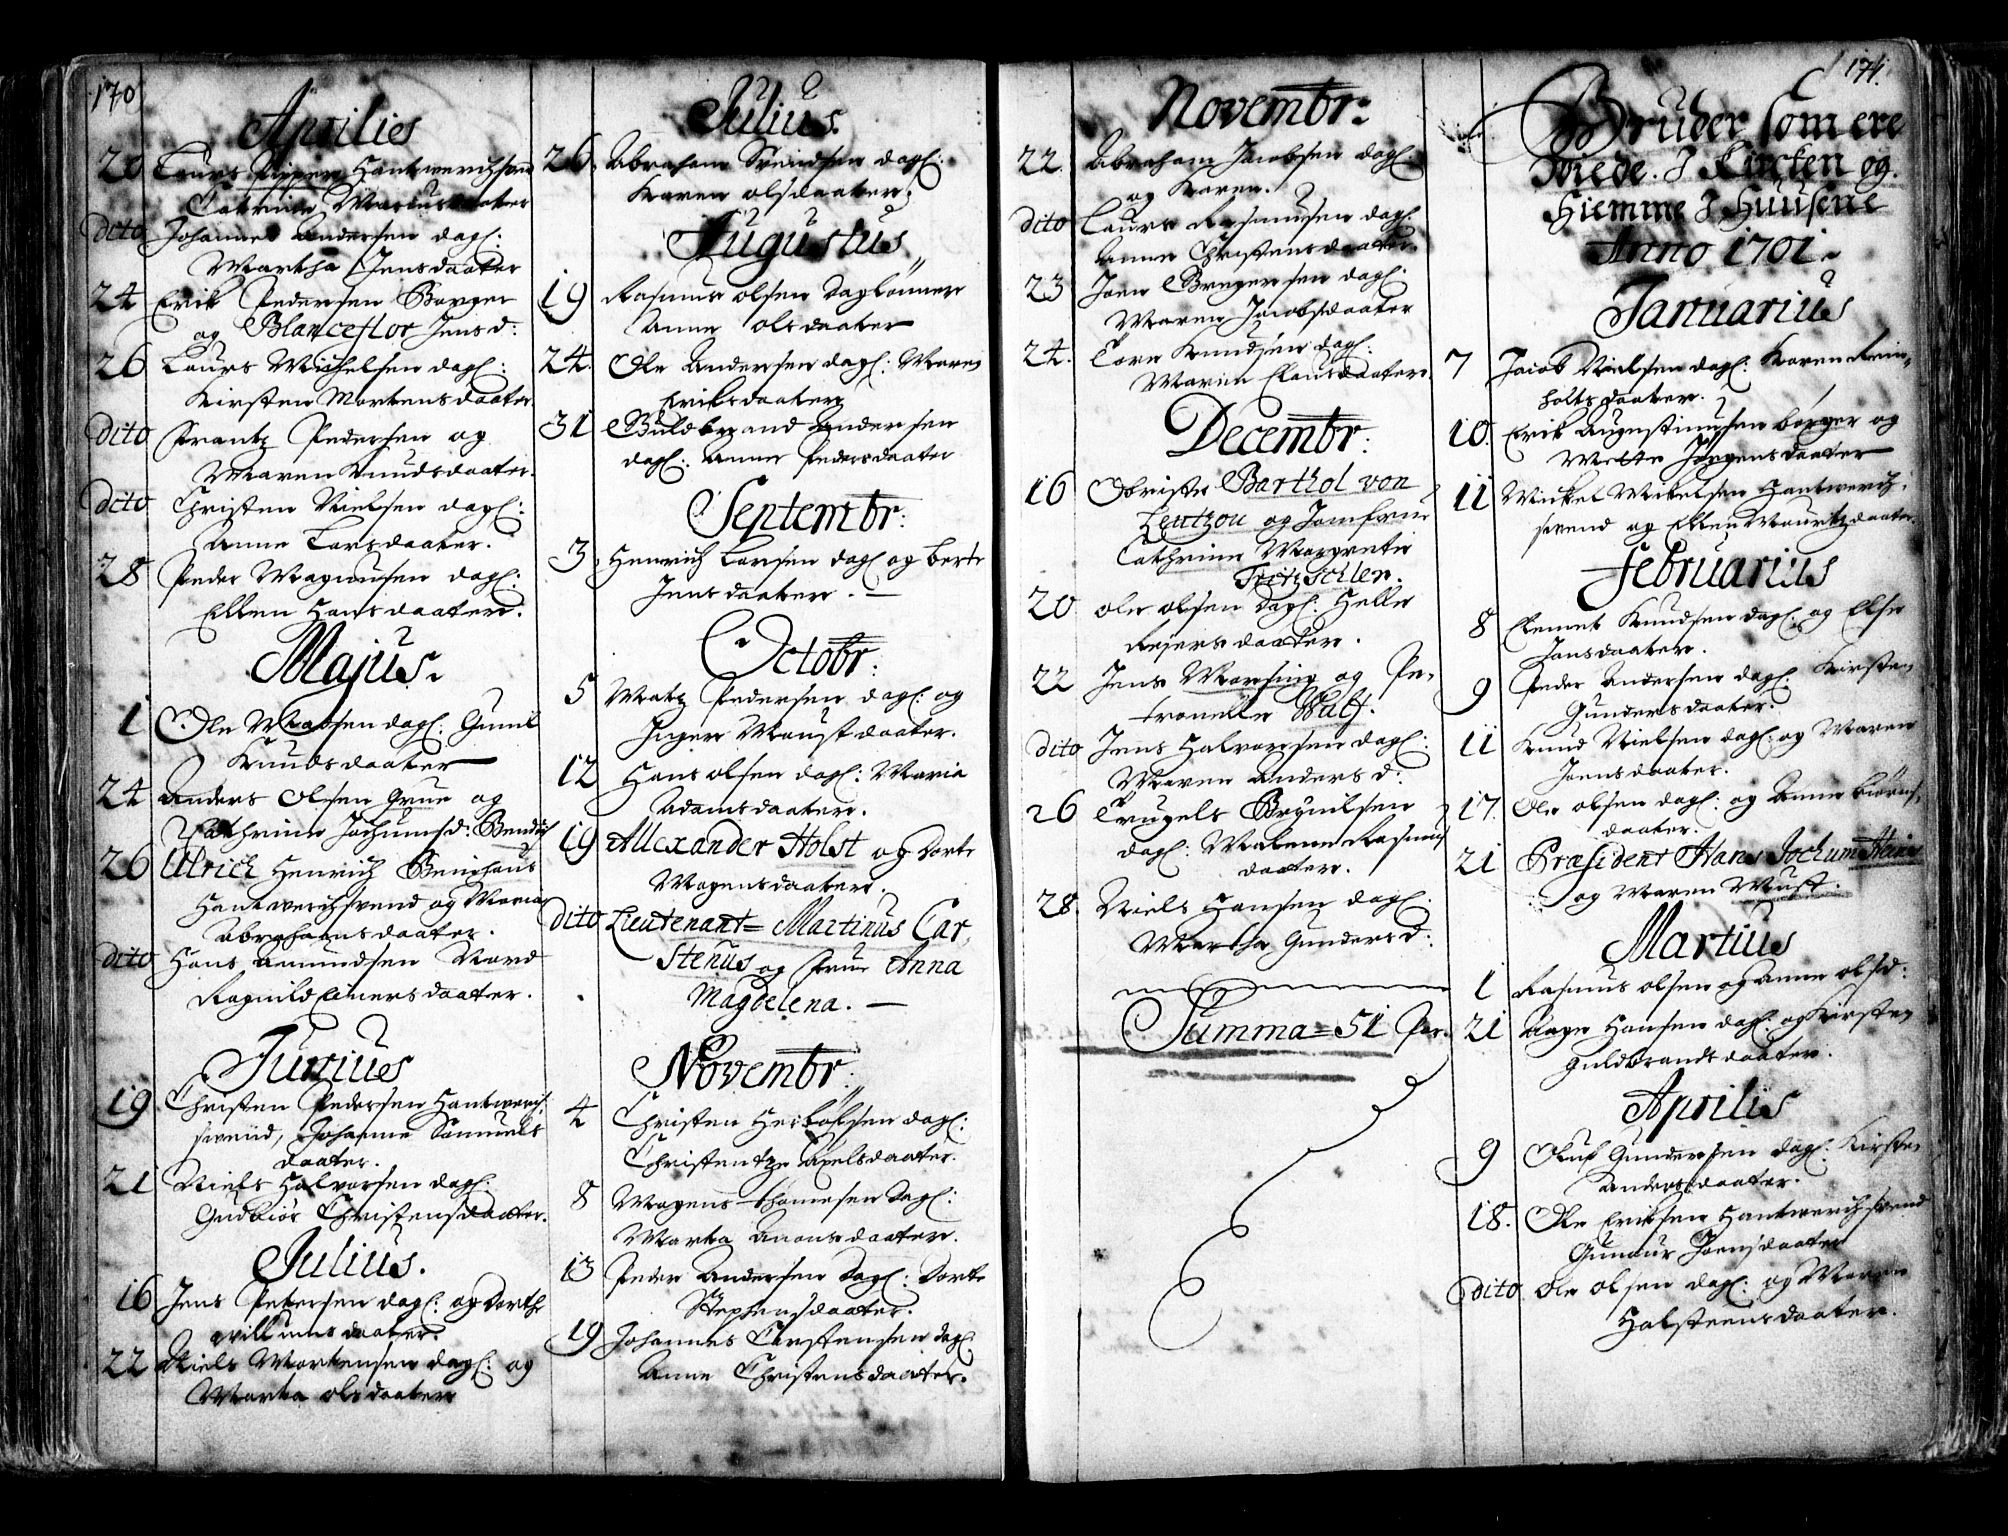 170
Aprilies
20 Laurs Pipper Hantwerchsvend
Catrine Marcusdaater
dito Johannes Andersen dagl:
Martha Jensdaater
24 Erik Pedersen Borger
og Blanceflor Jensd:
26 Laurs Michelsen dagl:
Kirsten Mortensdaater
dito Frantz Pedersen og
Maren Knudsdaater.
dito Christen Nielsen dagl:
Anne Larsdaater.
28 Peder Magnusen dagl:
Ellen Hansdaater.
Majus.
1 Ole Madsen dagl: Gunil
Knudsdaater
24 Anders Olsen Grue og
Cathrine Jochumsd: Bendix
26 Ulrich Henrich
Hantwerchsvend og Maria
Abrahamsdaater.
dito Hans Amundsen Nord
Ragnild Einersdaater.
Junius
19. Christen Pedersen Hantwerch
svend, Johanne Samuels
daater.
21 Niels Halvorsen dagl:
Gudbiör Christensdaater.
Julius.
16 Jens Petersen dagl: og Dorth
Willumsdaater.
22 Niels Mortensen dagl: og
Marta Olsdaater
Julius.
26. Abraham Svendsen dagl:
Karen Olsdaater.
Augustus
19 Rasmus Olsen Daglönner
Anne Olsdaater
24. Ole Andersen dagl: Maren
Eriksdaater
31 Guldbrand Andersen
dagl: Anne Pedersdaater
Septembr:
3. Henrich Larsen dagl og Berte
Jensdaater. —
Octobr:
5 Matz Pedersen dagl: og
Inger Moustdaater.
12 Hans Olsen dagl: Maria
Adamsdaater.
19 Allexander Holst og Dorte
Mogensdaater.
dito Lieutenant= Martinus Car,
stenus og Frue Anna
Magdelena. —
Novembr:
4 Christen Herlofsen dagl:
Christentze Axelsdaater.
8 Mogens Thomesen Dagl:
Marta Anonsdaater.
13 Peder Andersen Dagl: Dorte
Stephensdaater.
19 Johannes Carstensen dagl
Anne Christensdaater.
Novembr:
22. Abraham Jacobsen dagl
og Karen.
dito Laurs Rasmusen dagl:
Anne Christensdaater
23 Joen Gregersen dagl:
Maren Jacobsdaater
24. Tore Knudsen dagl:
Maren Clausdaater.
Decembr:
16 Obriste Barthol von
Leutzou og Jomfrue
Cathrine Margrete
Fritzschler.
20 Ole Olsen Dagl: Helle
Reiersdaater.
22 Jens Morsing og Pe,
tronelle Wulf.
dito Jens Halvorsen dagl:
Maren Andersd:
26 Trugels Brynilsen
dagl: Malene Rasmus
daater.
28. Niels Hansen dagl.
Martha Gundersd:
Summa= 51 Par.
171.
Bruder som ere
Wiede. I Kircken og.
Hiemme I Huusene
Anno 1701.
Januarius
7 Jacob Nielsen dagl: Karen Rein,
holtsdaater.
10. Erik Augustinusen borger og
Mette Jörgensdaater
11 Mickel Mikelsen Hantwerch,
svend og Ellen Mouritzdaater.
Februarius
8 Clemet Knudsen dagl: og Else
Jonsdaater.
9 Peder Andersen dagl: Kirsten
Gundersdaater.
11 Knud Nielsen dagl: og Maren
Joensdaater.
17. Ole Olsen dagl: og Anne Biörns,
daater.
21 Præsident Hans Jochum Hein
og Maren Must.
Martius
1 Rasmus Olsen og Anne Olsd:
21 Aage Hansen dagl: og Kirsten
Guldbrandsdaater.
Aprilis
9 Oluf Gundersen dagl: Kirsten
Andersdaater.
18. Ole Eriksen Hantwerchsvend
Gunnur Joensdaater
dito Ole Olsen dagl: og Maren
Halsteensdaater.